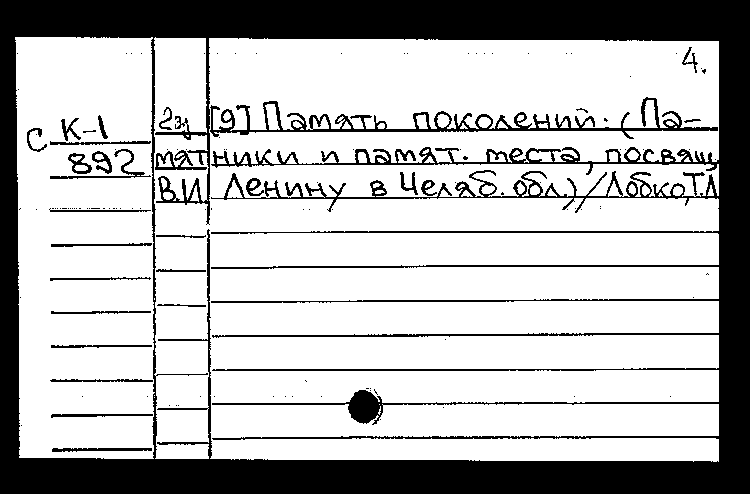 4.
С К-1 2эз [9] Память поколений. (Па-
892 мятники и памят. места, посвящ,
В.И. Ленину в Челяб. обл.)//Лобко,Т.Л